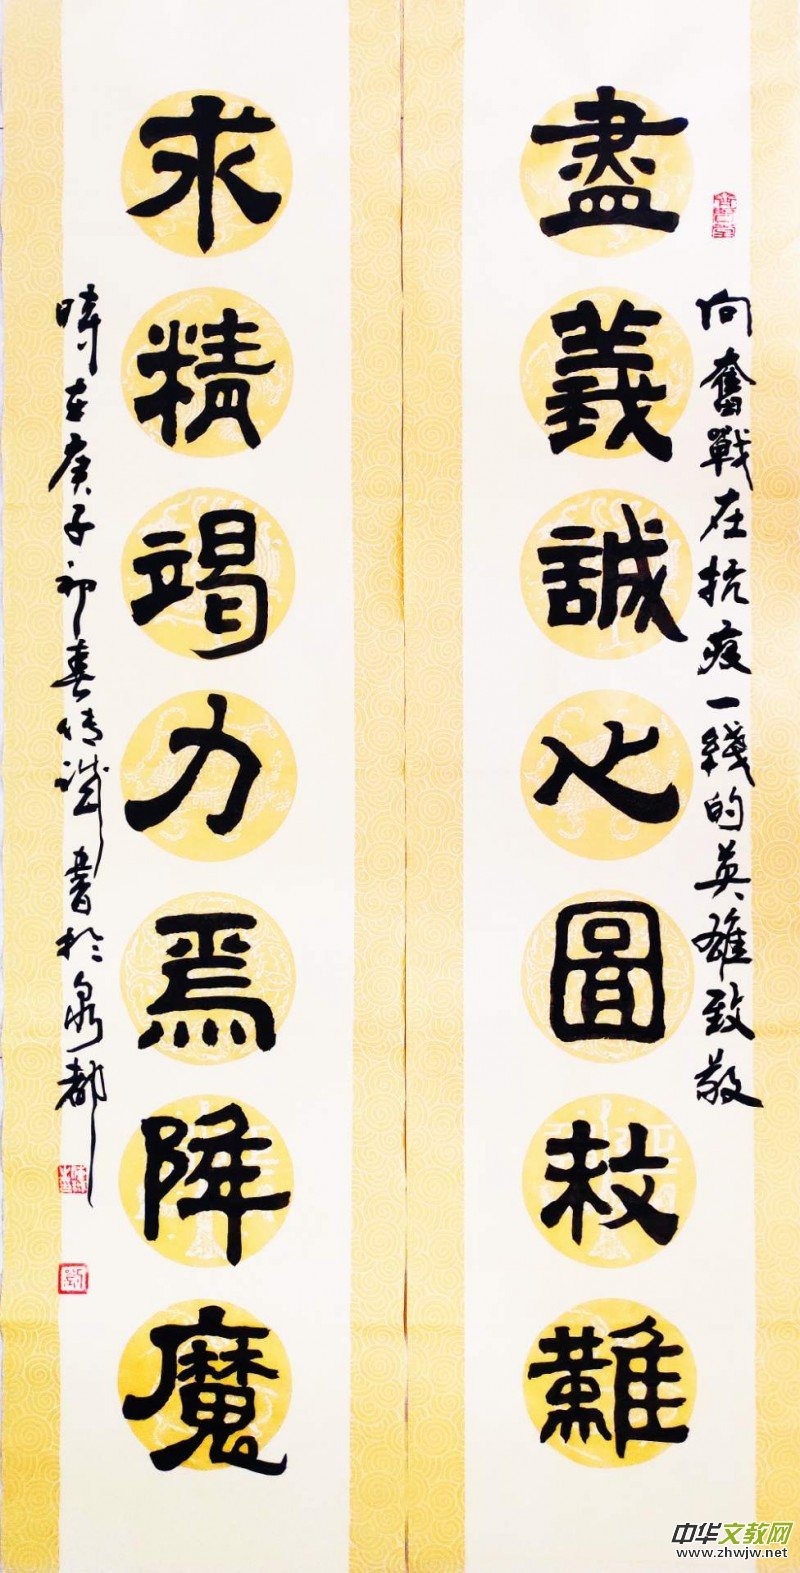 向奮戰在抗疫一綫的英雄致敬
盡義誠心圖救難
求精竭力焉降魔
時在庚子初春情誠書於泉都
中华文教网
www.zhwjw.net